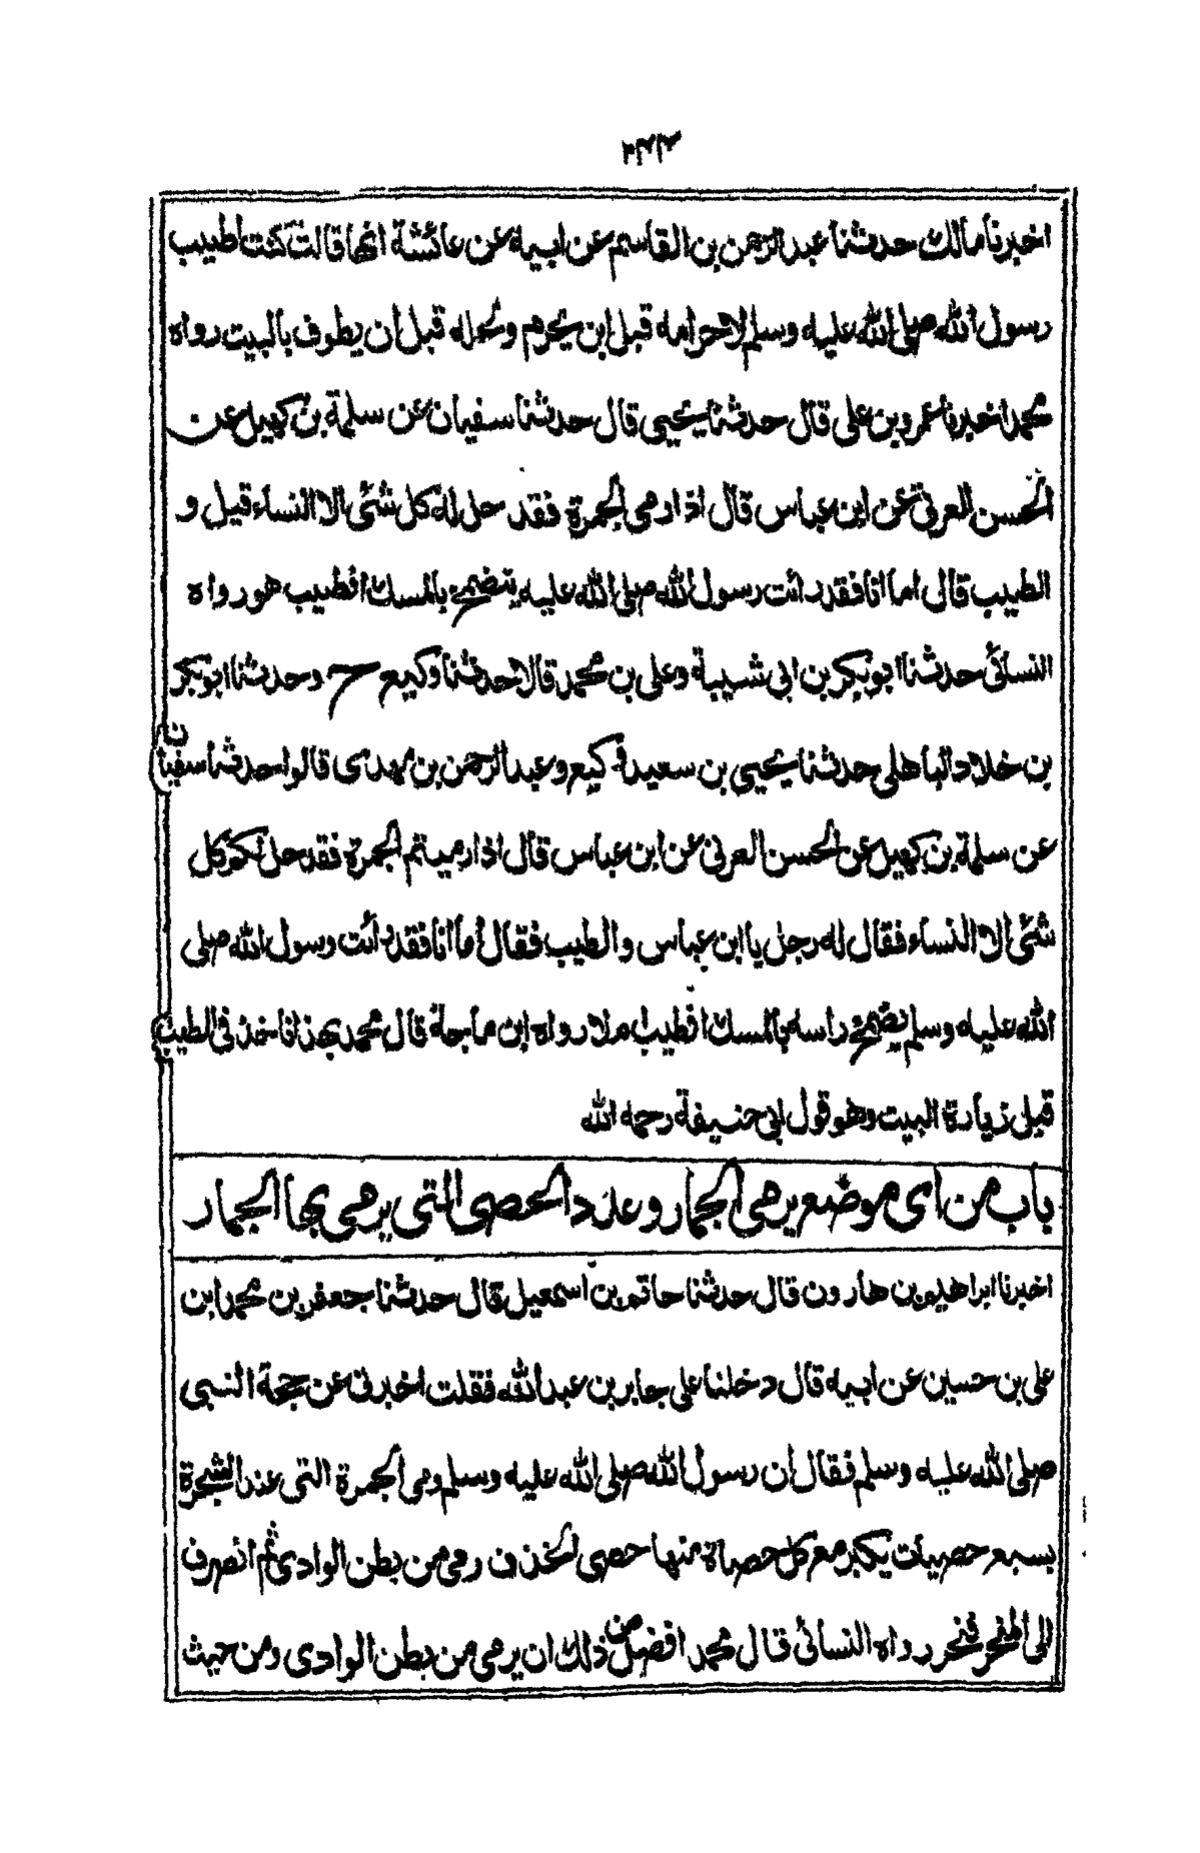 اخبرنا مالك حدثنا عبد الرحمن بن القاسم عن ابيه عن عائشة انها قالت كنت اطيب
رسول الله صلى الله عليه وسلم لاحرامه قبل ان يحرم ولحله قبل ان يطوف بالبيت رواه
محمد اخبرنا عمرو بن على قال حدثنا يحيى قال حدثنا سفيان عن سلمة بن كهيل عن
الحسن العرنى عن ابن عباس قال اذا رمى الجمرة فقد حل له كل شئى الا النساء قيل و
الطيب قال اما انا فقد رائت رسول الله صلى الله عليه يتضمخ بالمسك افطيب هو رواه
النسائى حدثنا ابو بكر بن ابى شيبة وعلى بن محمد قالا حدثنا وكيع ح وحدثنا ابو بكر
بن خلاد الباهلى حدثنا يحيى بن سعيد و كيع وعبد الرحمن بن مهدى قالوا حدثنا سفيان
عن سلمة بن كهيل عن الحسن العرنى عن ابن عباس قال اذا رميتم الجمرة فقد حل لكم كل
شئى الا النساء فقال له رجل يا ابن عباس والطيب فقال أما انا فقد رائت رسول الله صلى
الله عليه وسلم يضمخ راسه بالمسك افطيب ام لا رواه ابن ماجة قال محمد بهذا ناخذ فى الطيب
قبل زيارة البيت وهو قول ابى حنيفة رحمه الله
باب من اى موضع يرمى الجمار وعدد الحصى التى يرمى بها الجمار
اخبرنا ابراهيم بن هارون قال حدثنا حاتم بن اسمعيل قال حدثنا جعفر بن محمد ابن
على بن حسين عن ابيه قال دخلنا على جابر بن عبد الله فقلت اخبرنى عن حجة النبى
صلى الله عليه وسلم فقال ان رسول الله صلى الله عليه وسلم رمى الجمرة التى عند الشجرة
بسبع حصيات يكبر مع كل حصاة منها حصى الخذف رمى من بطن الوادى ثم انصرف
الى المنحر فنحر رواه النسائى قال محمد افضل من ذلك ان يرمى من بطن الوادى ومن حيث